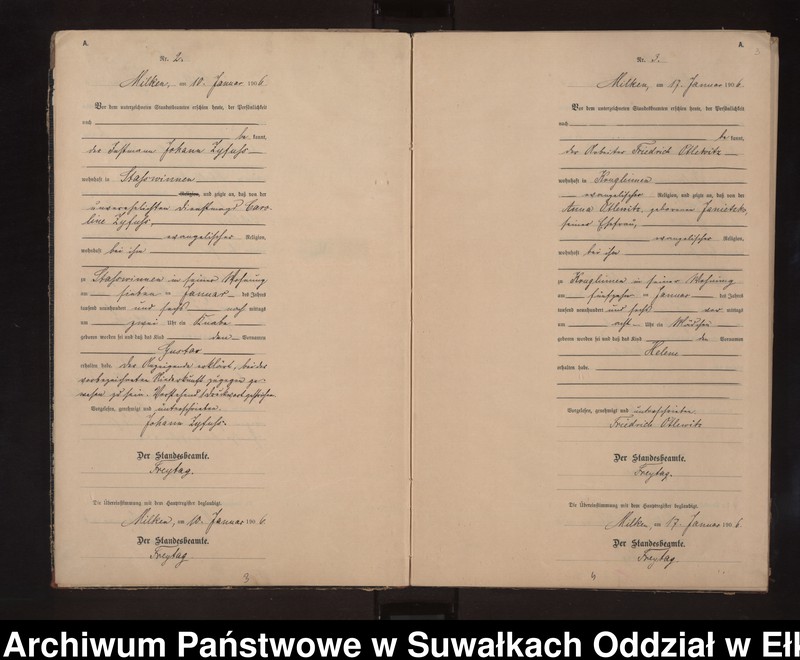 A.
Nr. 2.
Milken, am 10. Januar 1906.
Vor dem unterzeichneten Standesbeamten erschien heute, der Persönlichkeit
nach
be kannt,
der Instmann Johann Zyfuhs
wohnhaft in Stasswinnen
Religion, und zeigte an, daß von der
unverehelichten Dienstmagd Caro-
line Zyfuhs,
evangelischer Religion,
wohnhaft bei ihm
zu Stasswinnen in seiner Wohnung
am sieben ten Januar des Jahres
tausend neunhundert und sechs nach mittags
um zwei Uhr ein Knabe
geboren worden sei und daß das Kind den Vornamen
Gustav
erhalten habe. Der Anzeigende erklärt, bei der
vorbezeichneten Niederkunft zugegen ge-
wesen zu sein. Vorstehend 1 Druckwort gestrichen.
Vorgelesen, genehmigt und unterschrieben.
Johann Zyfuhs.
Der Standesbeamte.
Freytag.
Die Übereinstimmung mit dem Hauptregister beglaubigt.
Milken, am 10. Januar 1906.
Der Standesbeamte.
Freytag
3
A.
3
Nr. 3.
Milken, am 17. Januar 1906.
Vor dem unterzeichneten Standesbeamten erschien heute, der Persönlichkeit
nach
be kannt,
der Arbeiter Friedrich Otlewitz
wohnhaft in Konglinnen
evangelischer Religion, und zeigte an, daß von der
Anna Otlewitz geborenen
seiner Ehefrau,
evangelischer Religion,
wohnhaft bei ihm
zu Konglinnen in seiner Wohnung
am fünfzehn ten Januar des Jahres
tausend neunhundert und sechs vor mittags
um acht Uhr ein Mädchen
geboren worden sei und daß das Kind die Vornamen
Helene
erhalten habe.
Vorgelesen, genehmigt und unterschrieben
Friedrich Otlewitz
Der Standesbeamte.
Freytag.
Die Übereinstimmung mit dem Hauptregister beglaubigt.
Milken, am 17. Januar 1906
Der Standesbeamte.
Freytag.
4
Archiwum Państwowe w Suwałkach Oddział w Eł